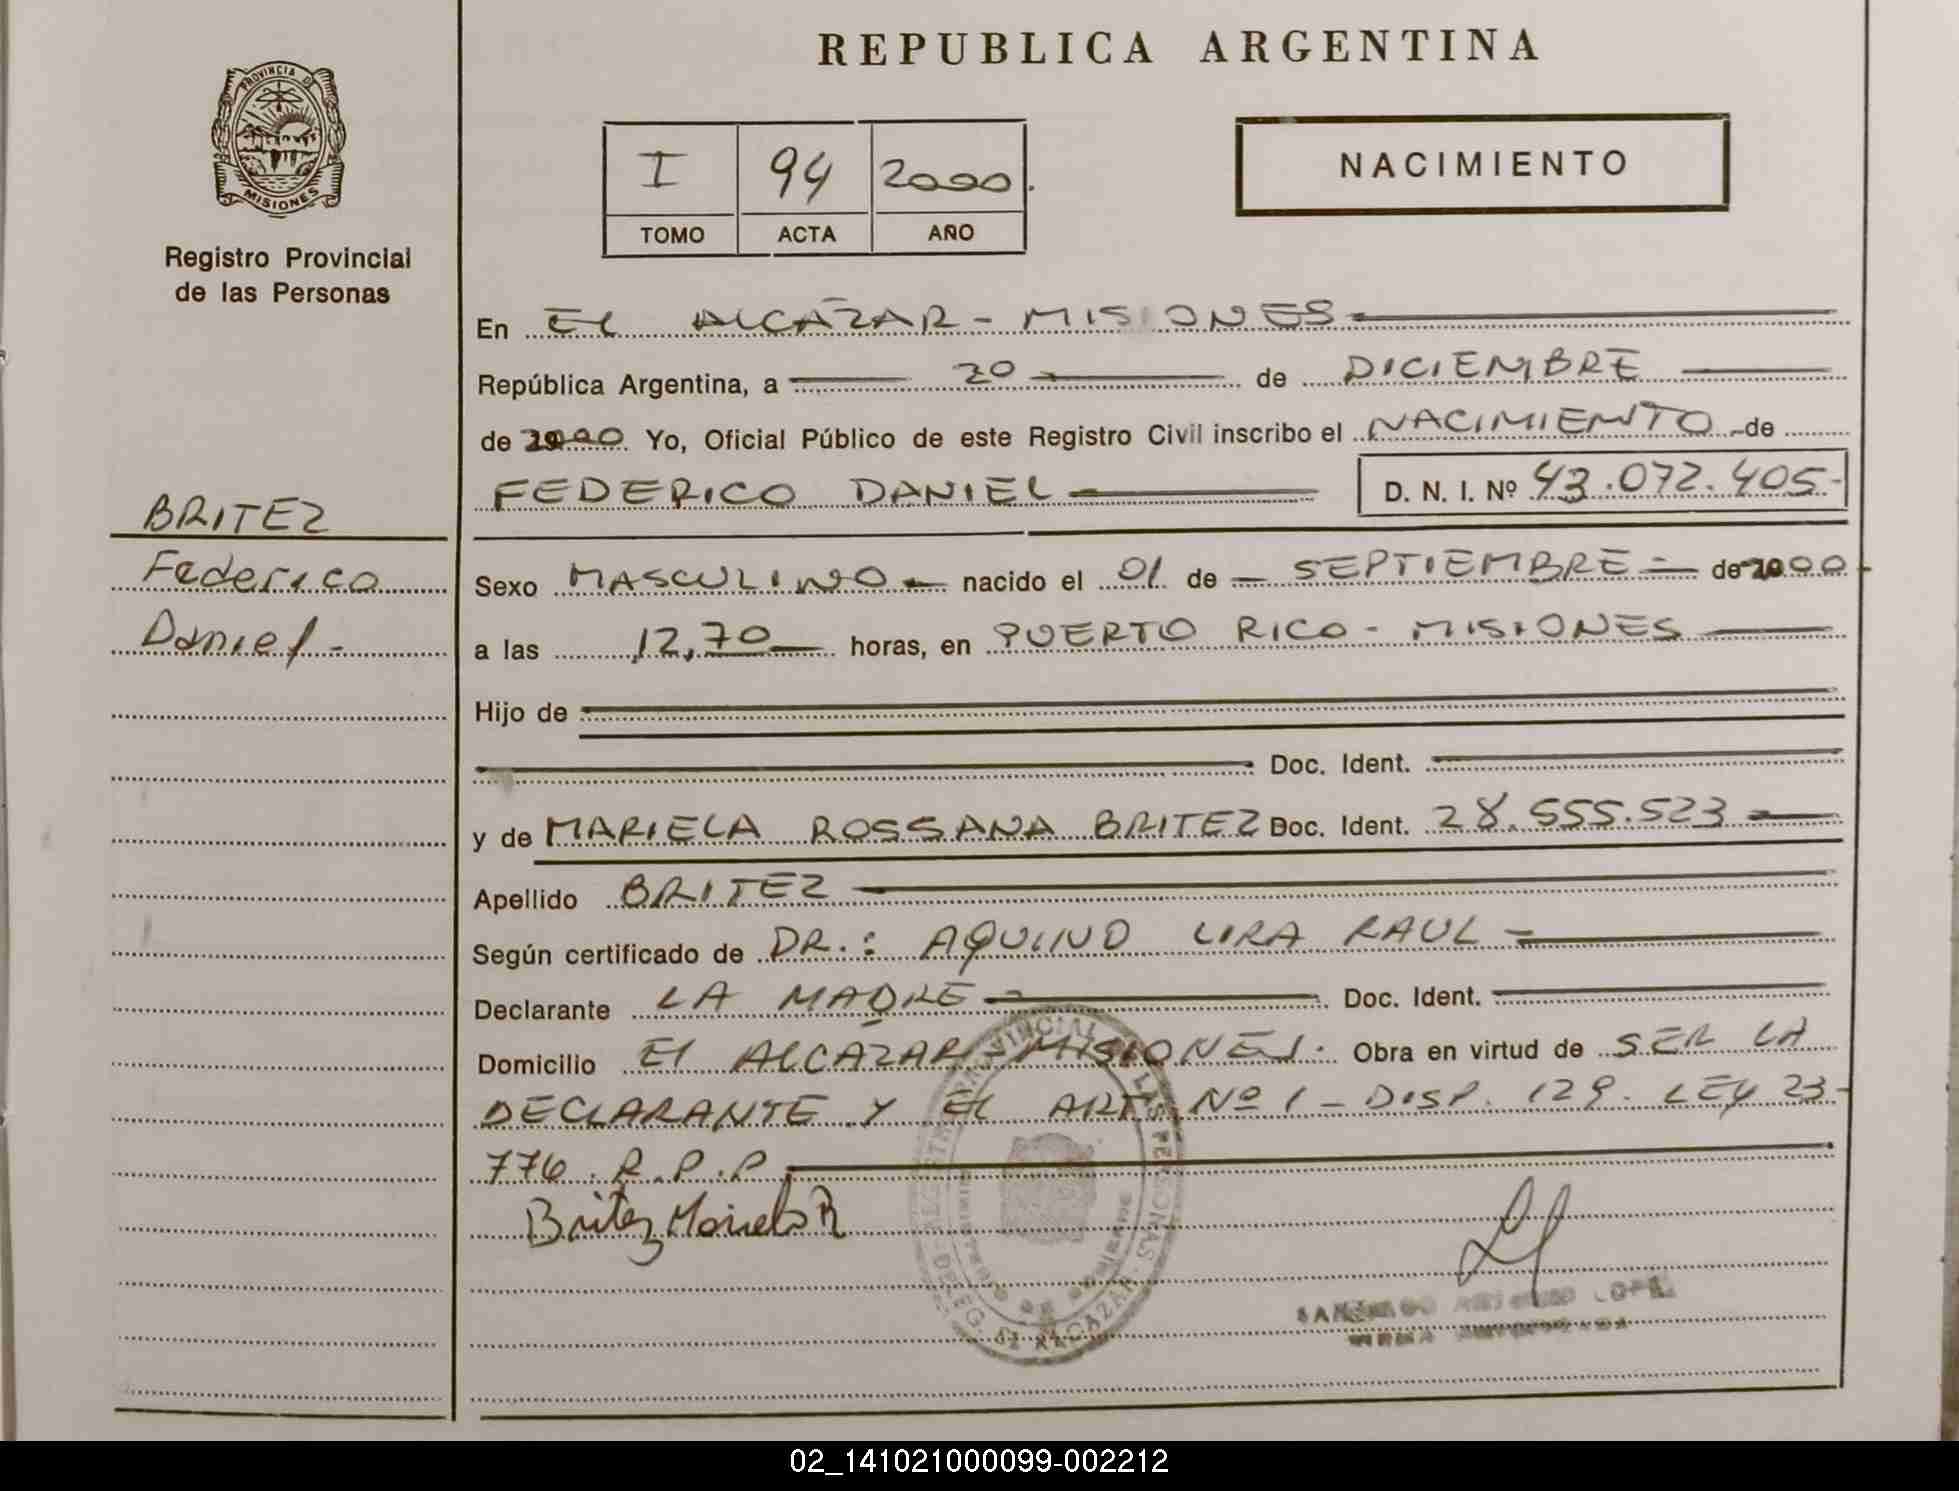 REPUBLICA ARGENTINA
PROVINCIA DE
MISIONES
Registro Provincial
de las Personas
I 94 2000
TOMO ACTA AÑO
NACIMIENTO
En EL ALCAZAR - MISIONES
República Argentina, a 20 de DICIEMBRE
de 2000 Yo, Oficial Público de este Registro Civil inscribo el NACIMIENTO de
FEDERICO DANIEL D. N. I. Nº 43.072.405-
BRITEZ
Federico
Daniel -
Sexo MASCULINO - nacido el 01 de - SEPTIEMBRE - de 2000
a las 12,70 horas, en PUERTO RICO - MISIONES
Hijo de
Doc. Ident.
y de MARIELA ROSSANA BRITEZ Doc. Ident. 28.555.523
Apellido BRITEZ
Según certificado de DR.: AQUINO LIRA RAUL -
Declarante LA MADRE Doc. Ident.
Domicilio El ALCAZAR - MISIONES. Obra en virtud de SER LA
DECLARANTE Y EL ART Nº 1 - DISP. 129. LEY 23-
776. R.P.P
Britez Mariela R
02_141021000099-002212